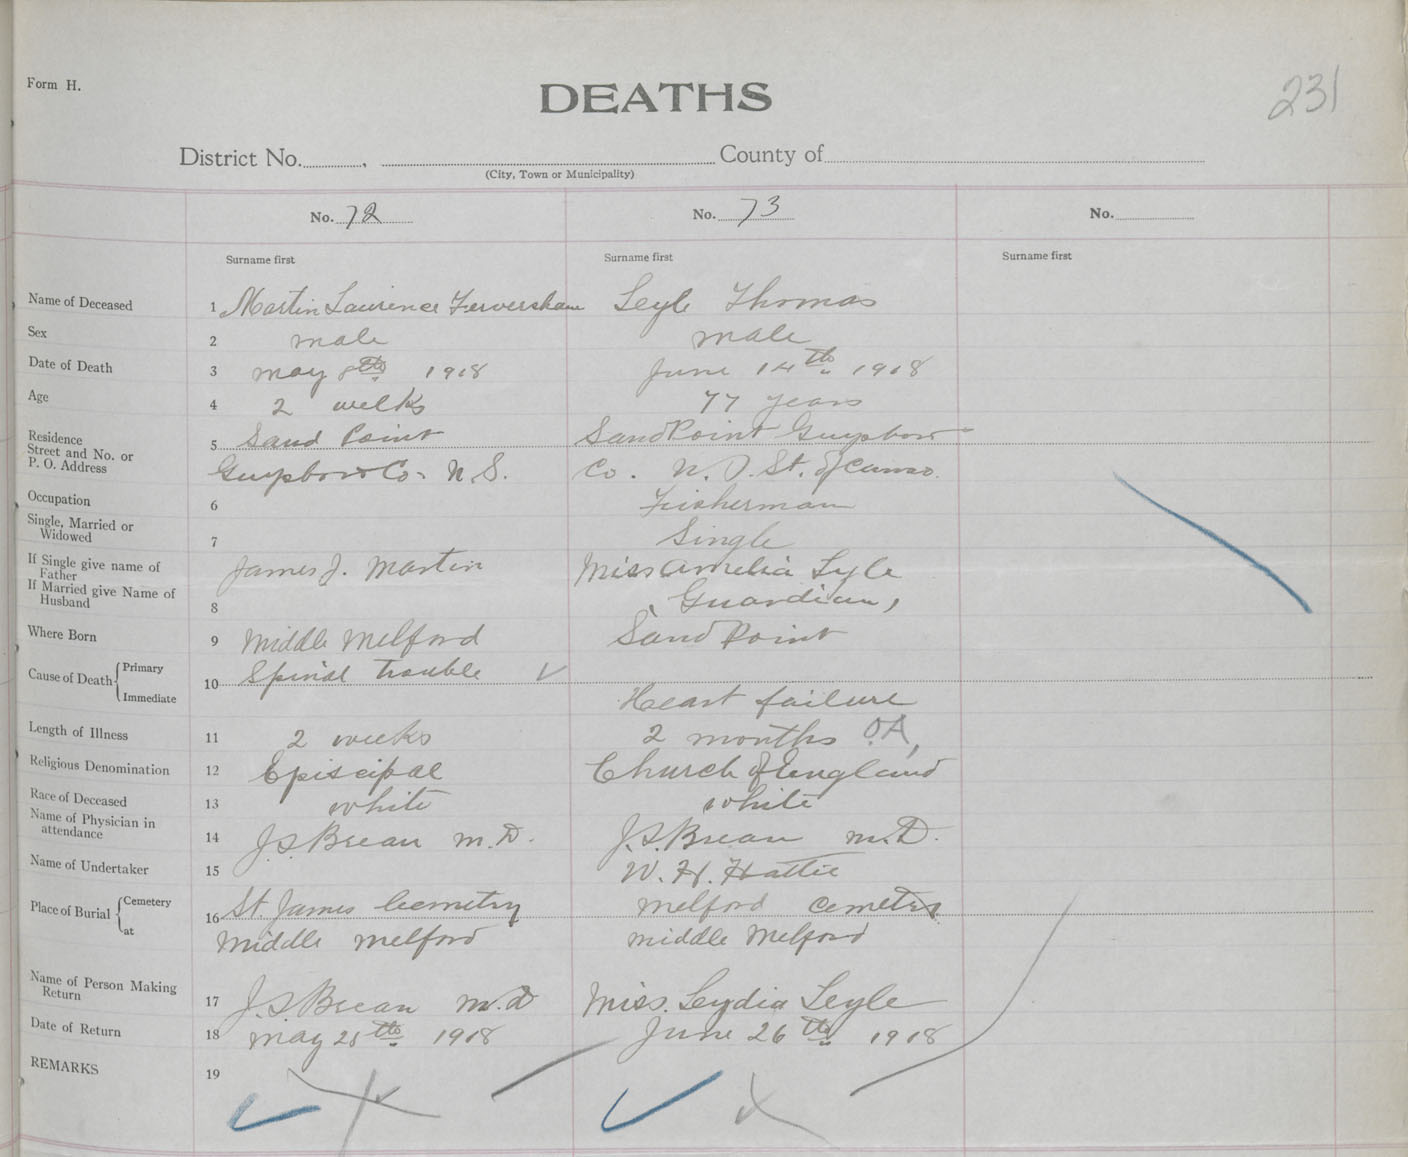 Form H.
DEATHS
231
District No. County of
(City, Town or Municipality)
No. 72 No. 73 No.
Surname first Surname first Surname first
Name of Deceased 1 Martin Laurence Ferversham Leyle Thomas
Sex 2 male male
Date of Death 3 may 8th 1918 June 14th 1918
Age 4 2 weeks 77 years
Residence 5 Sand Point SandPoint Guysboro
Street and No. or
P. O. Address Guysboro Co. N.S. Co. N. S. St. of Canso
Occupation 6 Fisherman
Single, Married or
Widowed 7 Single
If Single give name of
Father James J. Martin Miss Amelia Lyle
If Married give Name of
Husband 8 Guardian,
Where Born 9 Middle Melford Sand Point
Cause of Death Primary 10 Spinal trouble
Immediate Heart failure
Length of Illness 11 2 weeks 2 months O.A,
Religious Denomination 12 Episcipal Church of England
Race of Deceased 13 white white
Name of Physician in
attendance 14 J.S. Brean m.D. J.S. Brean m.D.
Name of Undertaker 15 W. H. Hattie
Place of Burial Cemetery 16 St. James Cemetry Melford Cemetry
at Middle melford middle Melford
Name of Person Making
Return 17 J.S. Brean m.d Miss. Leydia Leyle
Date of Return 18 may 28th 1918 June 26th 1918
REMARKS 19